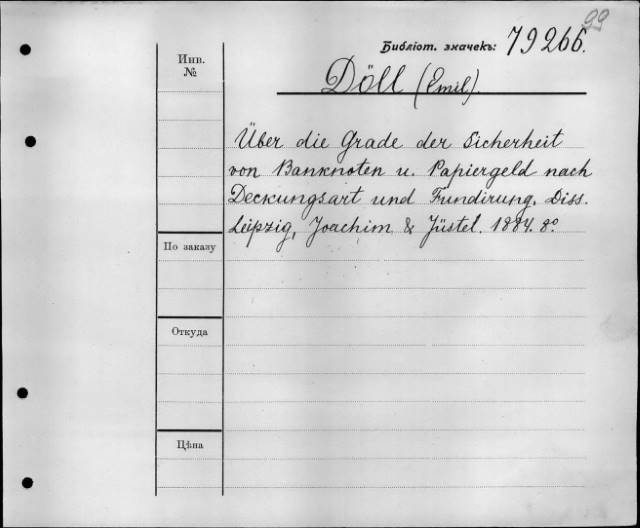 99
Библіот. значекъ: 79266.
Инв.
№
Döll (Emil).
Über die Grade der Sicherheit
von Banknoten u. Papiergeld nach
Deckungsart und Fundirung. Diss.
Leipzig, Joachim & Jüstel. 1884. 8°
По заказу
Откуда
Цѣна